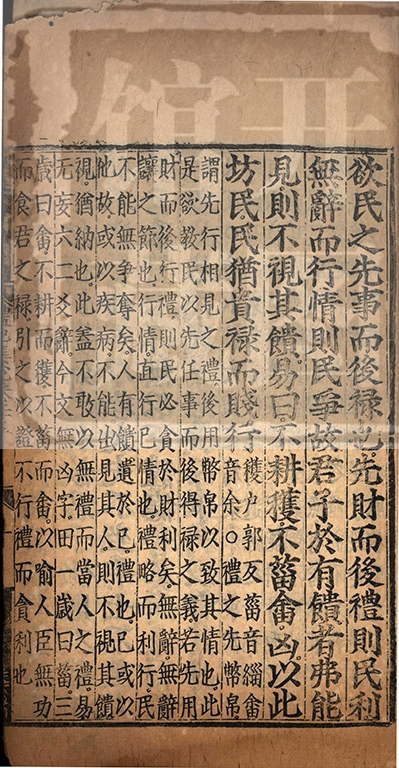 欲民之先事而後禄也先財而後禮則民利
無辭而行情則民爭故君子於有饋者弗能
見則不視其饋易曰不耕穫不菑畬凶以此
坊民民猶貴禄而賤行
穫户郭反菑音緇畬
音余○禮之先幣帛
謂先行相見之禮後用幣帛以致其情也此
是欲教民以先任事而後得禄之義若先用
財而後行禮則民必貪於財利矣無辭無辭
讓之節也行情直行己情也禮略而利行民
不能無争奪矣人有饋遺於己禮也己或以
他故或以疾病不能出見其人則不視其饋
視猶納也此蓋不敢以無禮而當人之禮易
无妄六二爻辭今文無凶字田一歲曰菑三
歲曰畬不耕而穫不菑而畬以喻人臣無功
而食君之禄引之以證不行禮而貪利也
館